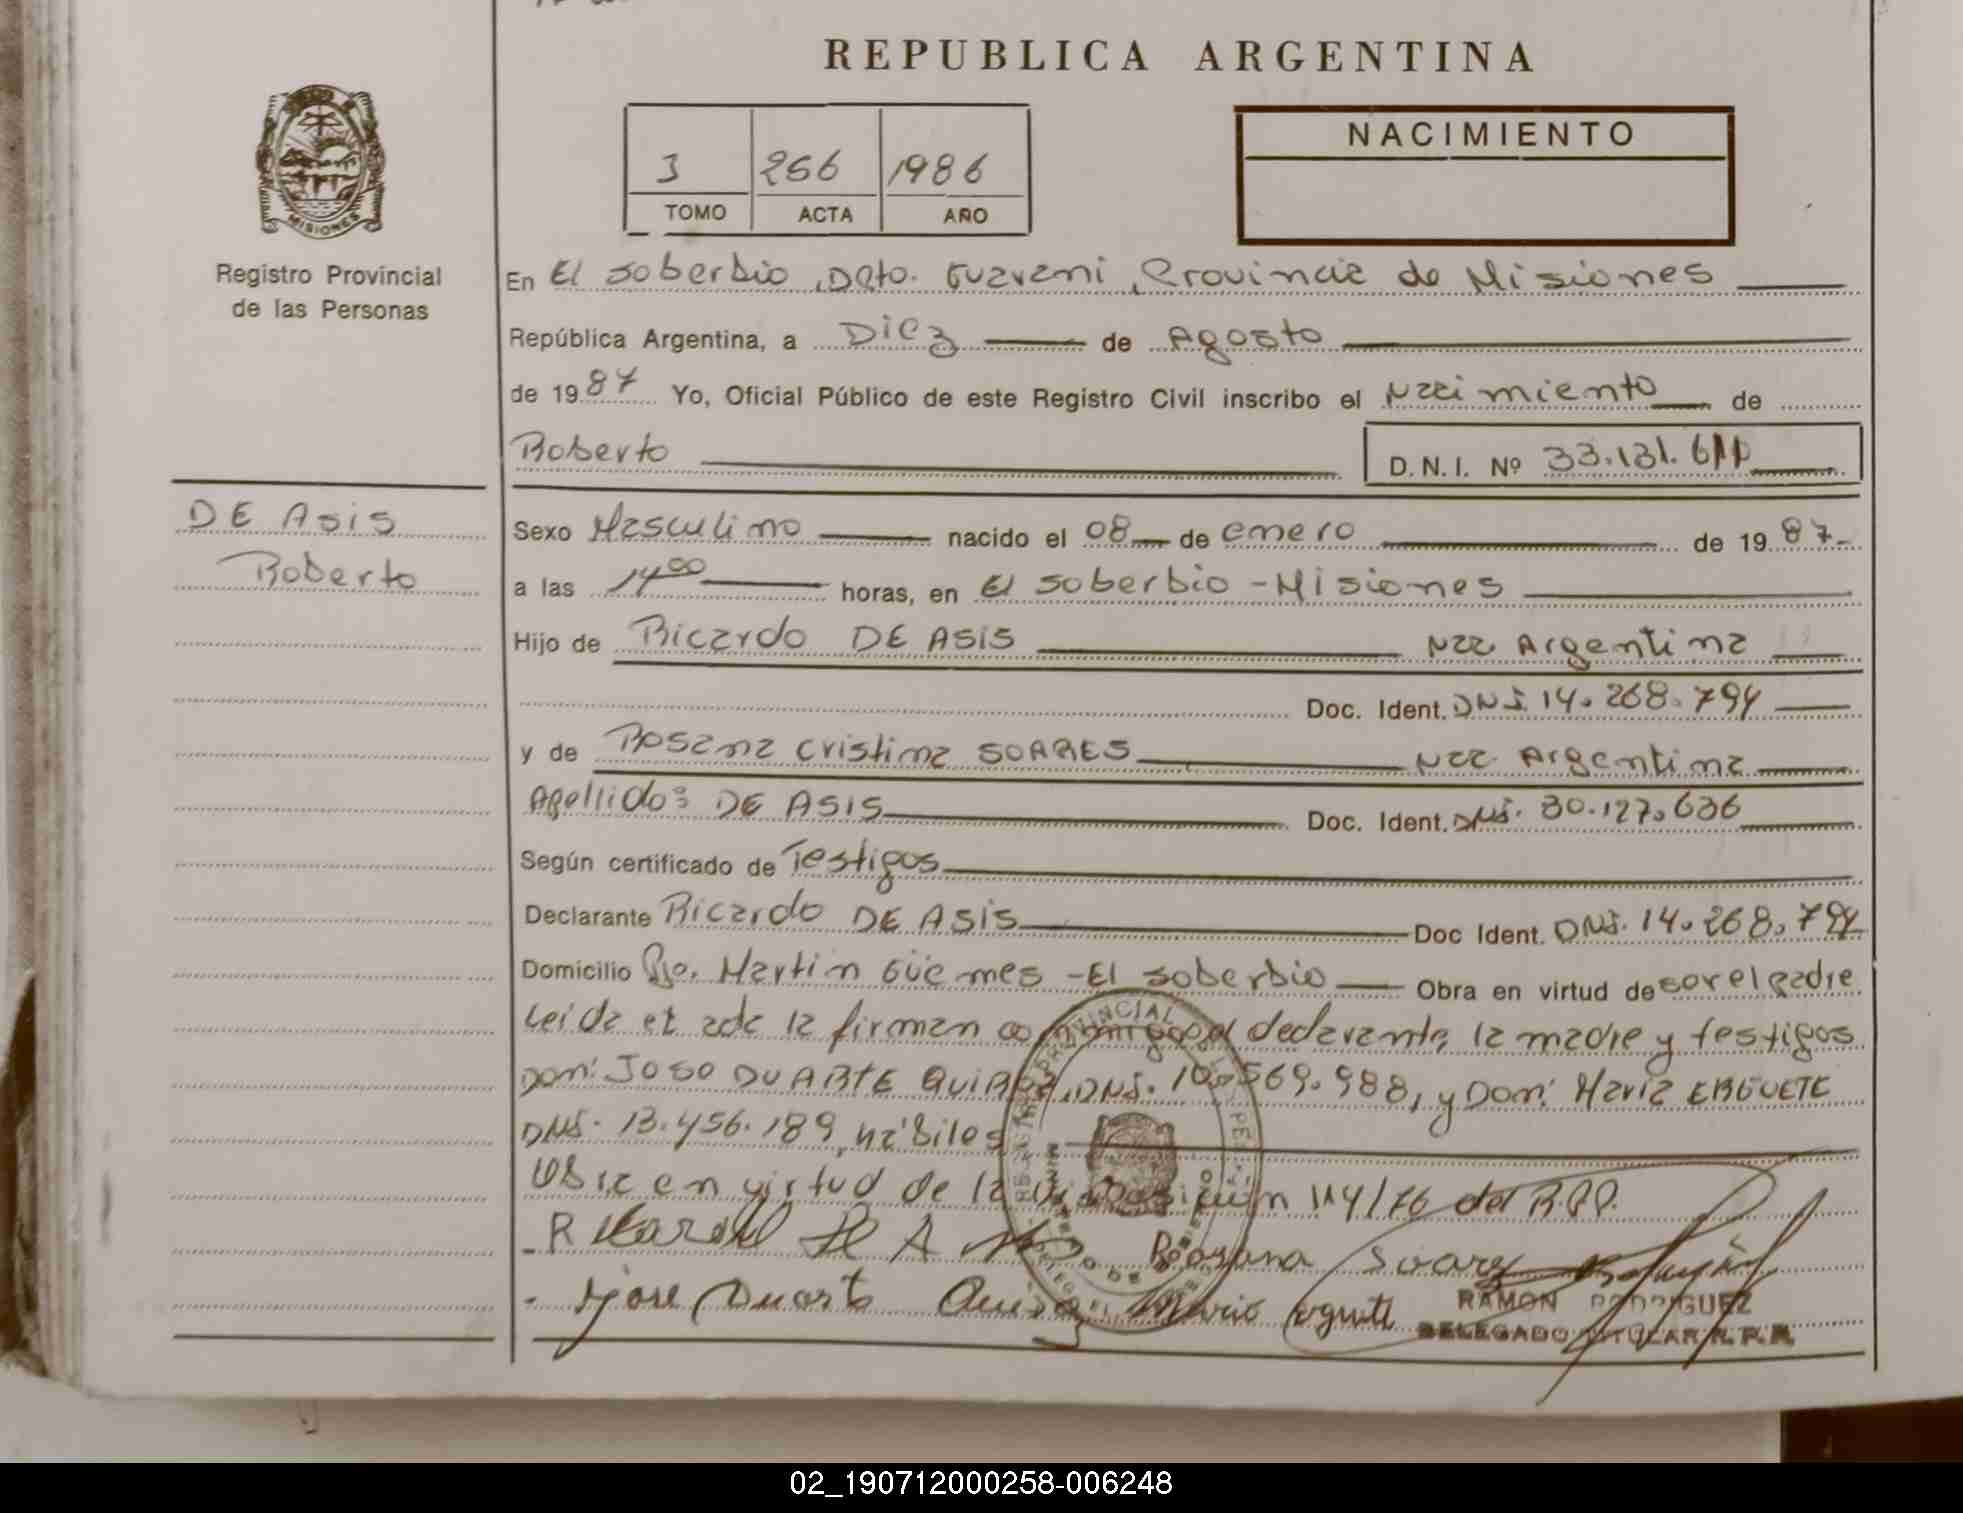 REPUBLICA ARGENTINA
3 266 1986
TOMO ACTA AÑO
NACIMIENTO
MISIONES
Registro Provincial
de las Personas
En El Soberbio, Dpto. Guarani, Provincia de Misiones
República Argentina, a Diez de Agosto
de 1987 Yo, Oficial Público de este Registro Civil inscribo el Nacimiento de
Roberto
D.N.I. Nº 33.131.611
DE Asis
Roberto
Sexo Masculino nacido el 08 de enero de 1987
a las 14 00 horas, en El Soberbio - Misiones
Hijo de Ricardo DE ASIS Nac Argentina
Doc. Ident. DNI. 14.268.794
y de Rosana Cristina SOARES Nac. Argentina
Apellido: DE ASIS Doc. Ident. DNI. 30.127.636
Según certificado de Testigos
Declarante Ricardo DE ASIS Doc Ident. DNI. 14.268.794
Domicilio Bo. Martin Güemes - El Soberbio Obra en virtud de ser el padre
Leida el acta la firman conmigo el declarante, la madre y testigos
Don: JOSÉ DUARTE QUIROZ, DNI. 10.569.988, y Don: Maria ERGUETE
DNI. 13.456.189, hábiles
Obra en virtud de la Disposición 114/76 del R.P.P.
Rosana Soarez
Jose Duarte Mario erguete
RAMON RODRIGUEZ
DELEGADO TITULAR R.P.P.
02_190712000258-006248